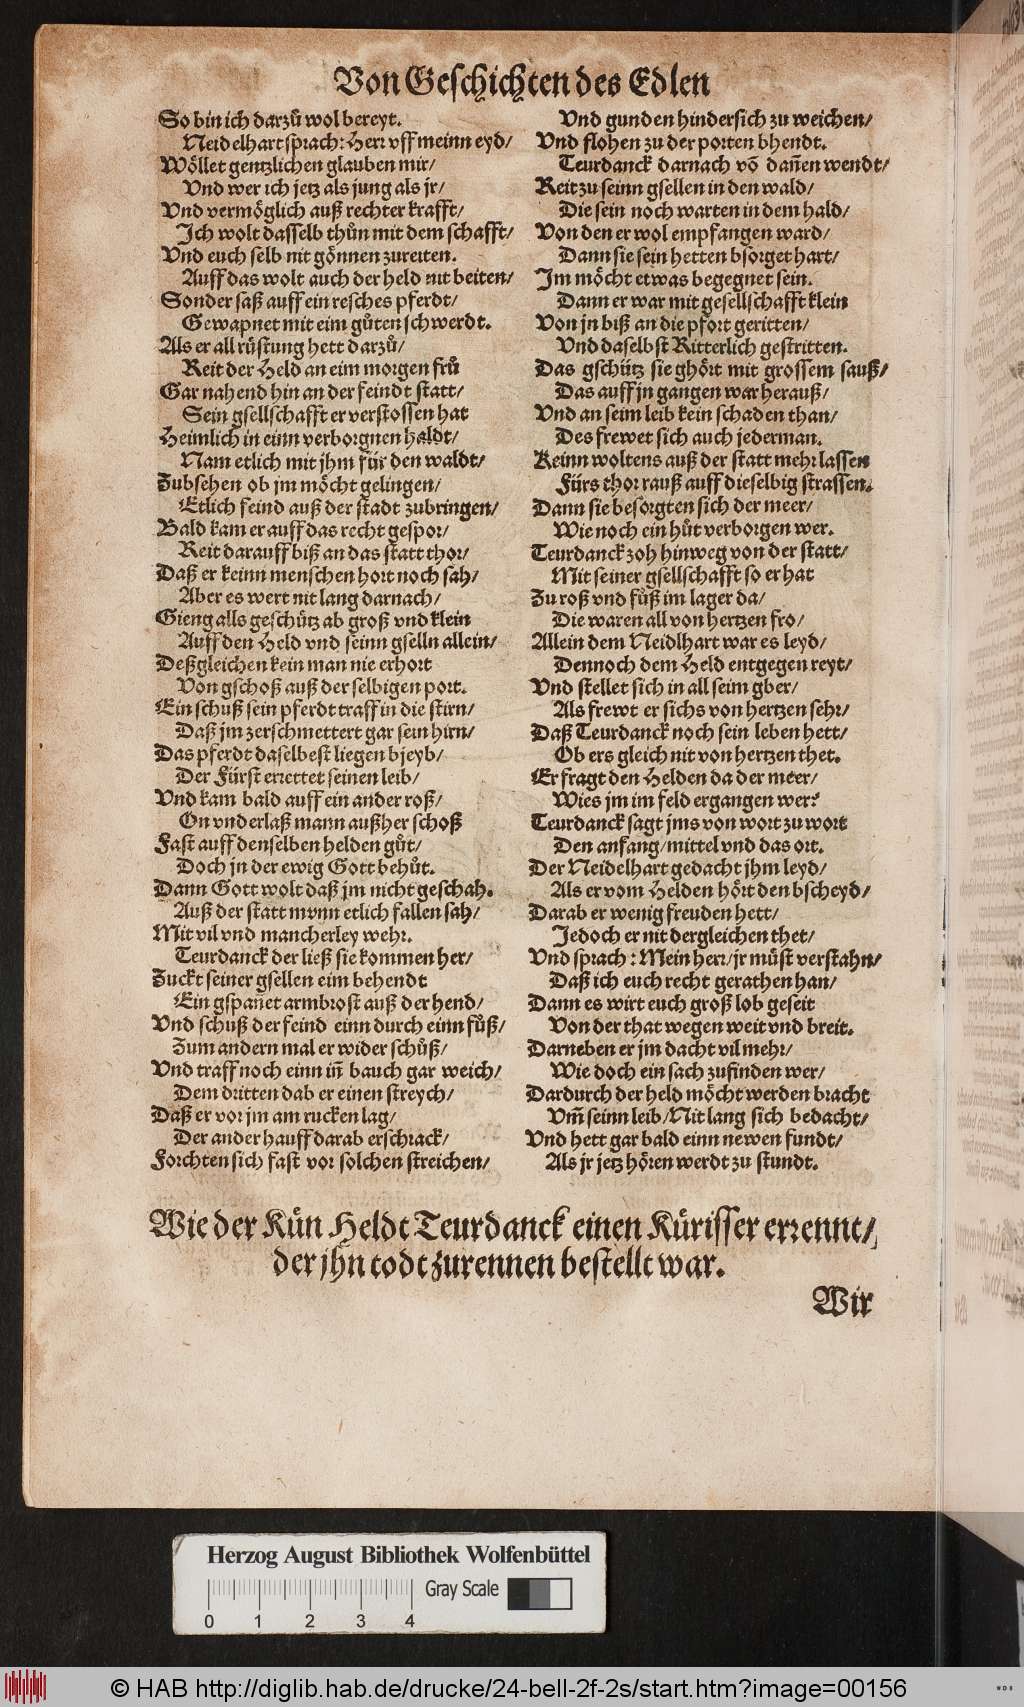 Von Geschichten des Edlen
So bin ich darzů wol bereyt.
Neidelhart sprach: Herr vff meinn eyd/
Wöllet gentzlichen glauben mir/
Vnd wer ich jetz als jung als jr/
Vnd vermöglich auß rechter krafft/
Ich wolt dasselb thůn mit dem schafft/
Vnd euch selb nit gönnen zureiten.
Auff das wolt auch der held nit beiten/
Sonder saß auff ein resches pferdt/
Gewapnet mit eim gůten schwerdt.
Als er all rüstung hett darzů/
Reit der Held an eim morgen frů
Gar nahend hin an der feindt statt/
Sein gsellschafft er verstossen hat
Heimlich in einn verborgnen haldt/
Nam etlich mit jhm für den waldt/
Zubsehen ob jm möcht gelingen/
Etlich feind auß der stadt zubringen/
Bald kam er auff das recht gespor/
Reit darauff biß an das statt thor/
Daß er keinn menschen hort noch sah/
Aber es wert nit lang darnach/
Gieng alls geschütz ab groß vnd klein
Auff den Held vnd seinn gselln allein/
Deßgleichen kein man nie erhort
Von gschoß auß der selbigen port.
Ein schuß sein pferdt traff in die stirn/
Daß jm zerschmettert gar sein hirn/
Das pferdt daselbest liegen bleyb/
Der Fürst errettet seinen leib/
Vnd kam bald auff ein ander roß/
On vnderlaß mann außher schoß
Fast auff denselben helden gůt/
Doch jn der ewig Gott behůt.
Dann Gott wolt daß jm nicht geschah.
Auß der statt mann etlich fallen sah/
Mit vil vnd mancherley wehr.
Teurdanck der ließ sie kommen her/
Zuckt seiner gsellen eim behendt
Ein gspañet armbrost auß der hend/
Vnd schuß der feind einn durch einn fůß/
Zum andern mal er wider schůß/
Vnd traff noch einn iñ bauch gar weich/
Dem dritten dab er einen streych/
Daß er vor jm am rucken lag/
Der ander hauff darab erschrack/
Forchten sich fast vor solchen streichen/
Vnd gunden hindersich zu weichen/
Vnd flohen zu der porten bhendt.
Teurdanck darnach võ dañen wendt/
Reit zu seinn gsellen in den wald/
Die sein noch warten in dem hald/
Von den er wol empfangen ward/
Dann sie sein hetten bsorget hart/
Im möcht etwas begegnet sein.
Dann er war mit gesellschafft klein
Von jn biß an die pfort geritten/
Vnd daselbst Ritterlich gestritten.
Das gschütz sie ghört mit grossem sauß/
Das auff jn gangen war herauß/
Vnd an seim leib kein schaden than/
Des frewet sich auch jederman.
Keinn woltens auß der statt mehr lassen
Fürs thor rauß auff dieselbig strassen.
Dann sie besorgten sich der meer/
Wie noch ein hůt verborgen wer.
Teurdanck zoh hinweg von der statt/
Mit seiner gsellschafft so er hat
Zu roß vnd fůß im lager da/
Die waren all von hertzen fro/
Allein dem Neidlhart war es leyd/
Dennoch dem Held entgegen reyt/
Vnd stellet sich in all seim gber/
Als frewt er sichs von hertzen sehr/
Daß Teurdanck noch sein leben hett/
Ob ers gleich nit von hertzen thet.
Er fragt den Helden da der meer/
Wies jm im feld ergangen wer?
Teurdanck sagt jms von wort zu wort
Den anfang/mittel vnd das ort.
Der Neidelhart gedacht jhm leyd/
Als er vom Helden hört den bscheyd/
Darab er wenig freuden hett/
Jedoch er nit dergleichen thet/
Vnd sprach: Mein herr/jr müst verstahn/
Daß ich euch recht gerathen han/
Dann es wirt euch groß lob geseit
Von der that wegen weit vnd breit.
Darneben er jm dacht vil mehr/
Wie doch ein sach zufinden wer/
Dardurch der held möcht werden bracht
Vm̃ seinn leib/Nit lang sich bedacht/
Vnd hett gar bald einn newen fundt/
Als jr jetz hören werdt zu stundt.
Wie der Kün Heldt Teurdanck einen Kürisser errennt/
der jhn todt zurennen bestellt war.
Wir
Herzog August Bibliothek Wolfenbüttel
Gray Scale
0 1 2 3 4
© HAB http://diglib.hab.de/drucke/24-bell-2f-2s/start.htm?image=00156